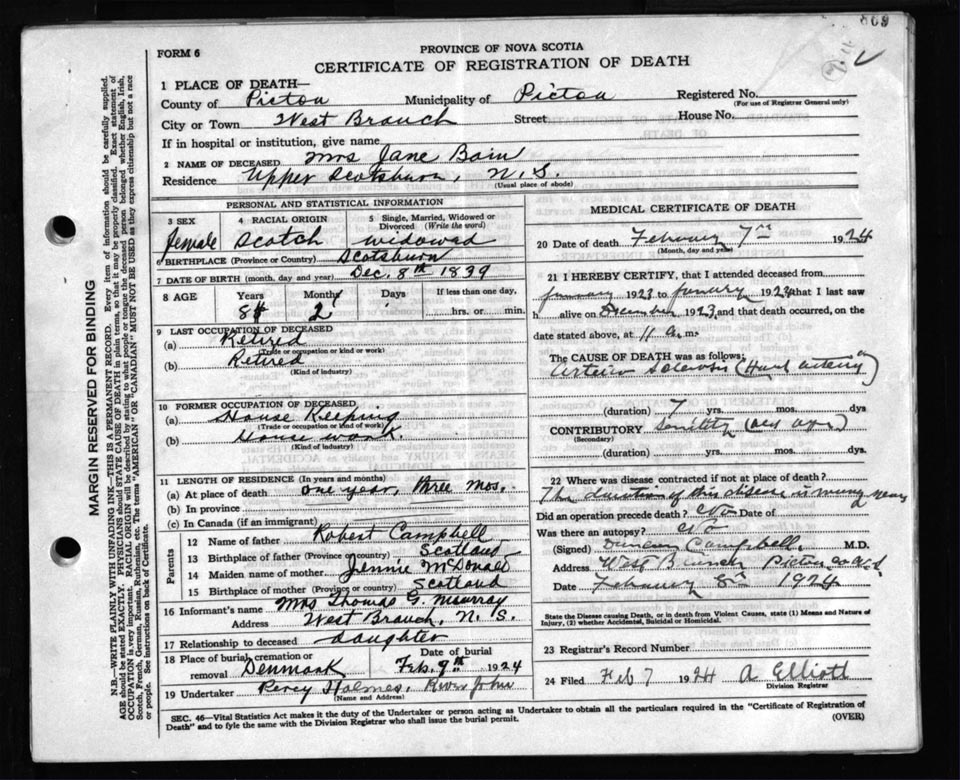 FORM 6
PROVINCE OF NOVA SCOTIA
CERTIFICATE OF REGISTRATION OF DEATH
1 PLACE OF DEATH—
County of Pictou Municipality of Pictou Registered No.
(For use of Registrar General only)
City or Town West Branch Street House No.
If in hospital or institution, give name
2 NAME OF DECEASED Mrs Jane Bain
Residence Upper Scotsburn, N.S.
(Usual place of abode)
PERSONAL AND STATISTICAL INFORMATION
3 SEX 4 RACIAL ORIGIN 5 Single, Married, Widowed or Divorced (Write the word)
female Scotch widowed
BIRTHPLACE (Province or Country) Scotsburn
7 DATE OF BIRTH (month, day, year) Dec. 8th 1839
8 AGE Years Months Days If less than one day,
84 2 hrs. or min.
9 LAST OCCUPATION OF DECEASED
(a) Retired
(Trade or occupation or kind or work)
(b) Retired
(Kind of industry)
10 FORMER OCCUPATION OF DECEASED
(a) House Keeping
(Trade or occupation or kind or work)
(b) House work.
(Kind of industry)
11 LENGTH OF RESIDENCE (In years and months)
(a) At place of death one year, three mos.
(b) In province
(c) In Canada (if an immigrant)
Parents
12 Name of father Robert Campbell
13 Birthplace of father (Province or country) Scotland
14 Maiden name of mother Jennie McDonald
15 Birthplace of mother (Province or country) Scotland
16 Informant's name Mrs Thomas G. Murray
Address West Branch, N.S.
17 Relationship to deceased daughter
18 Place of burial, cremation or removal Denmark Date of burial Feb. 9th 1924
19 Undertaker Percy Holmes, River John
(Name and Address)
MEDICAL CERTIFICATE OF DEATH
20 Date of death February 7 1924
(Month, day and year)
21 I HEREBY CERTIFY, that I attended deceased from
January 1923 to January 1924 that I last saw
h alive on December 1923, and that death occurred, on the
date stated above, at 11 a.m.
The CAUSE OF DEATH was as follows:
Arterio Sclerosis (Hard artery)
(duration) 7 yrs. mos. dys
CONTRIBUTORY Senility (old age)
(Secondary)
(duration) yrs. mos. dys.
22 Where was disease contracted if not at place of death?
The duration of this disease is many years
Did an operation precede death? No Date of
Was there an autopsy? No
(Signed) Duncan Campbell, M.D.
Address West Branch Pictou Co N.S.
Date February 8 1924
State Disease causing Death, or in death from Violent Causes, state (1) Means and Nature of
Injury, (2) whether Accidental, Suicidal or Homicidal.
23 Registrar's Record Number
24 Filed Feb 7 1924 A Elliott
Division Registrar
SEC. 46—Vital Statistics Act makes it the duty of the Undertaker or person acting as Undertaker to obtain all the particulars required in the "Certificate of Registration of
Death" and to fyle the same with the Division Registrar who shall issue the burial permit.
(OVER)
MARGIN RESERVED FOR BINDING
N.B.—WRITE PLAINLY WITH UNFADING INK—THIS IS A PERMANENT RECORD. Every item of information should be carefully supplied.
AGE should be stated EXACTLY. PHYSICIANS should STATE CAUSE OF DEATH in plain terms, so that it may be properly classified. Exact statement of
OCCUPATION is very important. RACIAL ORIGIN will be described by stating to what people or tongue the deceased person belonged, whether English, Irish,
Scotch, French, German, Russian, Ruthenian, etc. The terms "AMERICAN" OR "CANADIAN" MUST NOT BE USED as they express citizenship but not a race
or people. See instructions on back of Certificate.